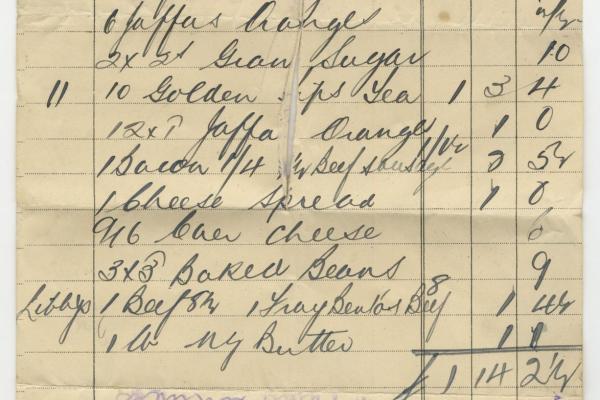 6 Jaffas Oranges
2x2s Gran Sugar 10
11 10 Golden Tips Tea 1 3 4
12x1 Jaffa Oranges 1 0
1 Bacon 1/4 Beef 5½
1 Cheese Spread 1 0
Cheese 6
3x3 Baked Beans 9
Libbys 1 Beef 1 Fray Bentos Beef 8 1 4½
1 lb NZ Butter 1
£ 1 14 2½